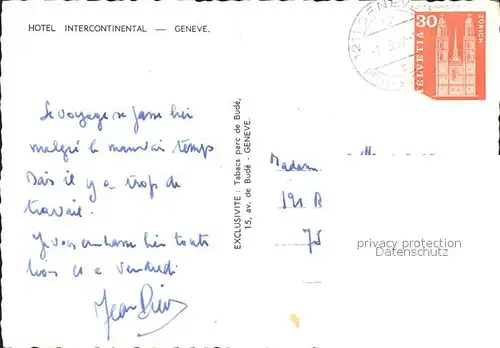 HOTEL INTERCONTINENTAL — GENEVE.
1211 GENEVE
HELVETIA 30
ZÜRICH
Le voyage se passe bien
malgré le mauvais temps
Mais il y a trop de
travail.
Je vous embrasse bien toutes
à vendredi
EXCLUSIVITE : Tabacs parc de Budé,
15, av. de Budé - GENEVE.
Madam
191 R
75
privacy protection
Datenschutz